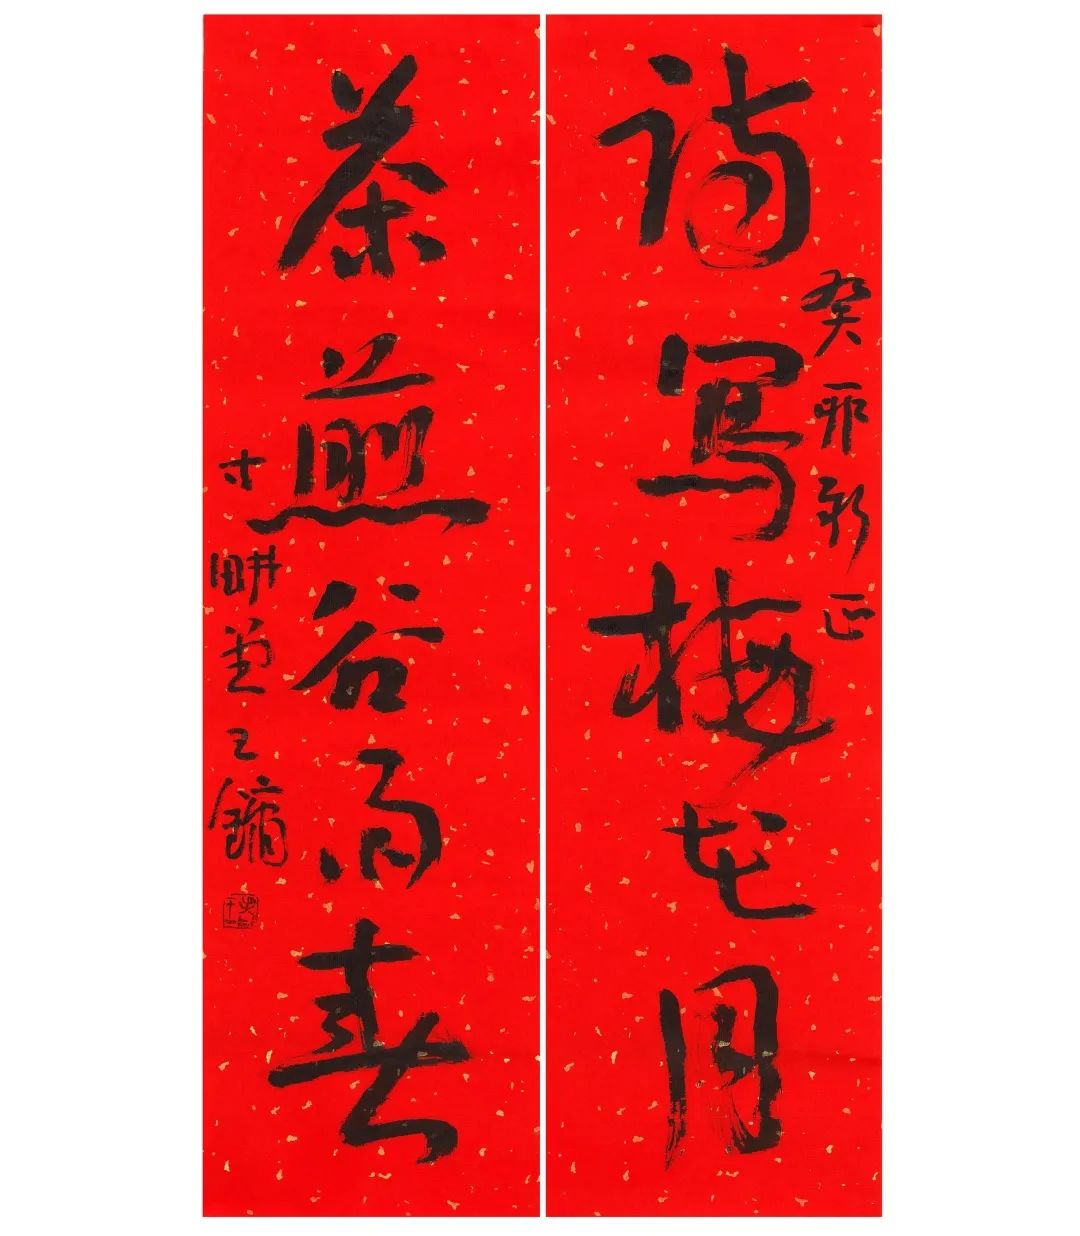 诗写梅花月
癸卯新正
茶煎谷雨春
寸畊堂王鏞